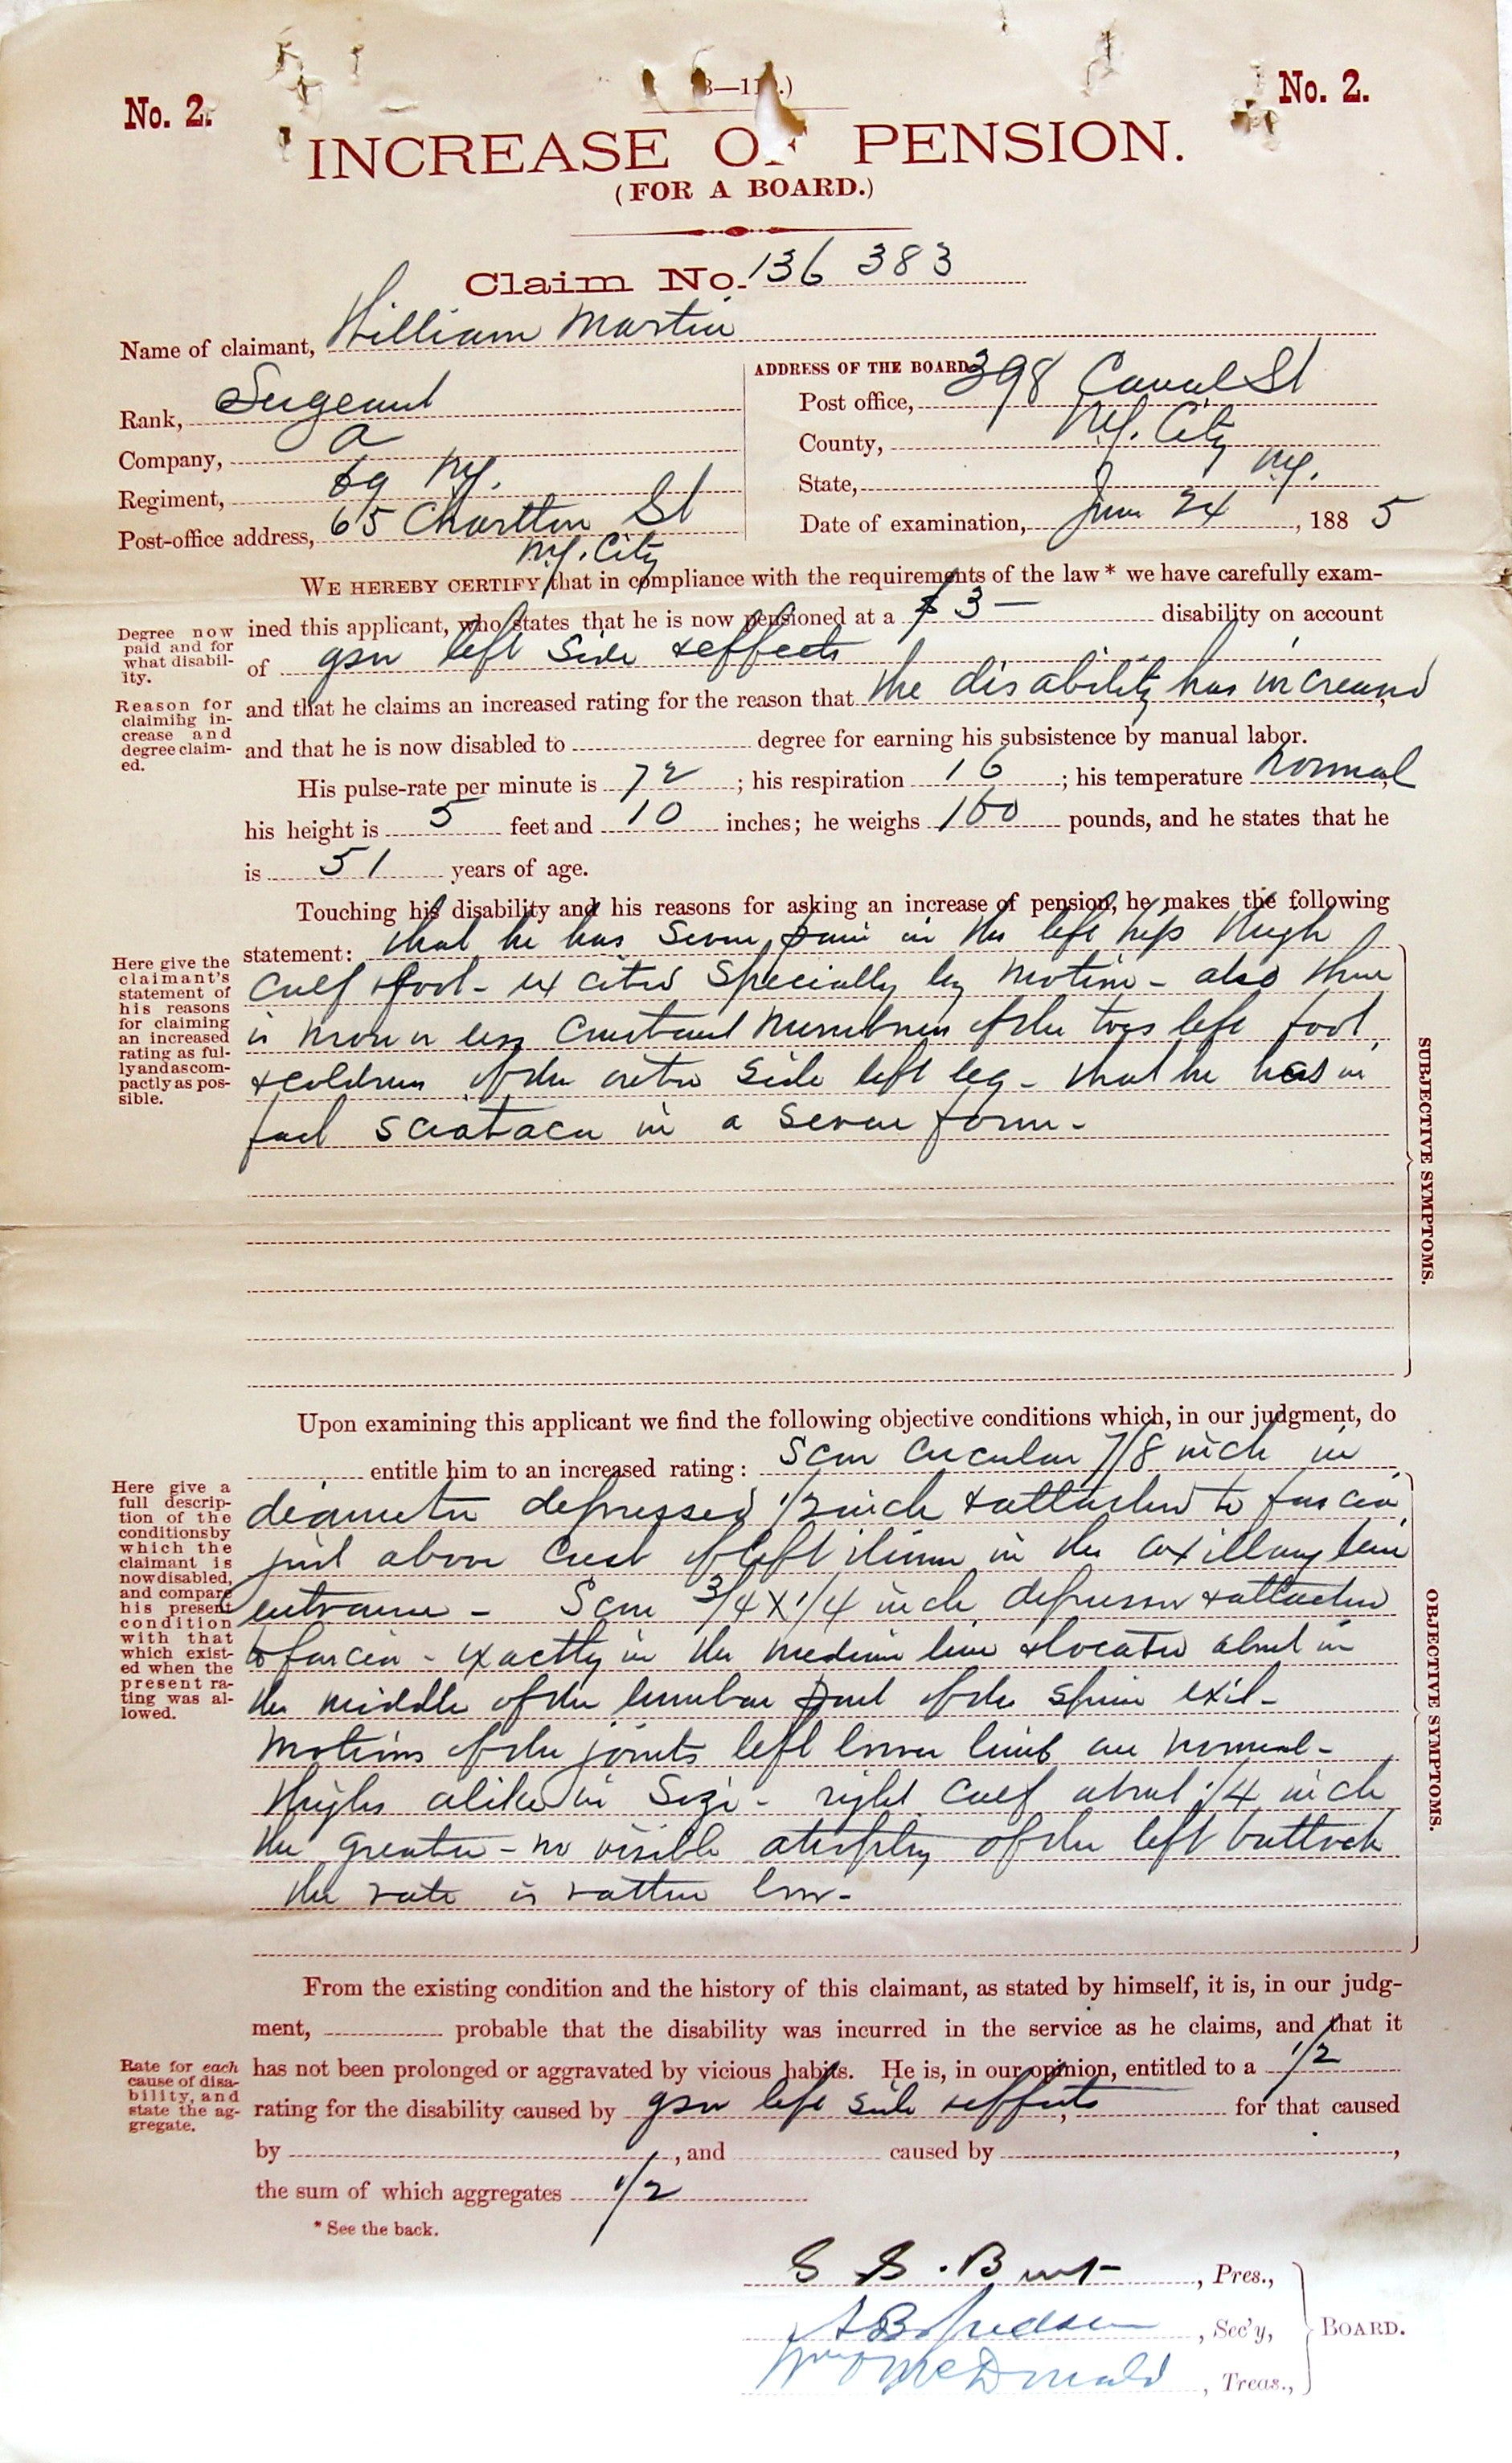 No. 2.
No. 2.
INCREASE OF PENSION.
(FOR A BOARD.)
Claim No. 136 383
Name of claimant, William Martin
Rank, Sergeant
Company, a
Regiment, 69 NY.
Post-office address, 65 Charlton St
NY. City
ADDRESS OF THE BOARD
Post office, 398 Canal St
County, NY. City
State, NY.
Date of examination, June 24, 1885
WE HEREBY CERTIFY that in compliance with the requirements of the law * we have carefully exam-
ined this applicant, who states that he is now pensioned at a $ 3 — disability on account
of gsw left side & effects
and that he claims an increased rating for the reason that the disability has increased,
and that he is now disabled to degree for earning his subsistence by manual labor.
Degree now
paid and for
what disabil-
ity.
Reason for
claiming in-
crease and
degree claim-
ed.
His pulse-rate per minute is 72; his respiration 16; his temperature normal,
his height is 5 feet and 10 inches; he weighs 160 pounds, and he states that he
is 51 years of age.
Touching his disability and his reasons for asking an increase of pension, he makes the following
statement: that he has severe pain in the left hip thigh
calf & foot - excited specially by motion - also there
is more or less constant numbness of the toes left foot
& coldness of the outer side left leg - that he has in
fact sciataca in a severe form -
Here give the
claimant's
statement of
his reasons
for claiming
an increased
rating as ful-
ly and as com-
pactly as pos-
sible.
SUBJECTIVE SYMPTOMS.
Upon examining this applicant we find the following objective conditions which, in our judgment, do
entitle him to an increased rating: Scar circular 7/8 inch in
diameter depressed 1/2 inch & attached to fascia
just above crest of left ilium in the axillary line
entrance - Scar 3/4 x 1/4 inch depressed & attached
to fascia - exactly in the median line & located about in
the middle of the lumbar part of the spine exit -
Motions of the joints left lower limb are normal -
thighs alike in size - right calf about 1/4 inch
the greater - no visible atrophy of the left buttock
the rate is rather low -
Here give a
full descrip-
tion of the
conditions by
which the
claimant is
now disabled,
and compare
his present
condition
with that
which exist-
ed when the
present ra-
ting was al-
lowed.
OBJECTIVE SYMPTOMS.
From the existing condition and the history of this claimant, as stated by himself, it is, in our judg-
ment, probable that the disability was incurred in the service as he claims, and that it
has not been prolonged or aggravated by vicious habits. He is, in our opinion, entitled to a 1/2
rating for the disability caused by gsw left side & effects, for that caused
by , and caused by ,
the sum of which aggregates 1/2
Rate for each
cause of disa-
bility, and
state the ag-
gregate.
* See the back.
S S. Burt, Pres.,
, Sec'y,
McDonald, Treas.,
BOARD.